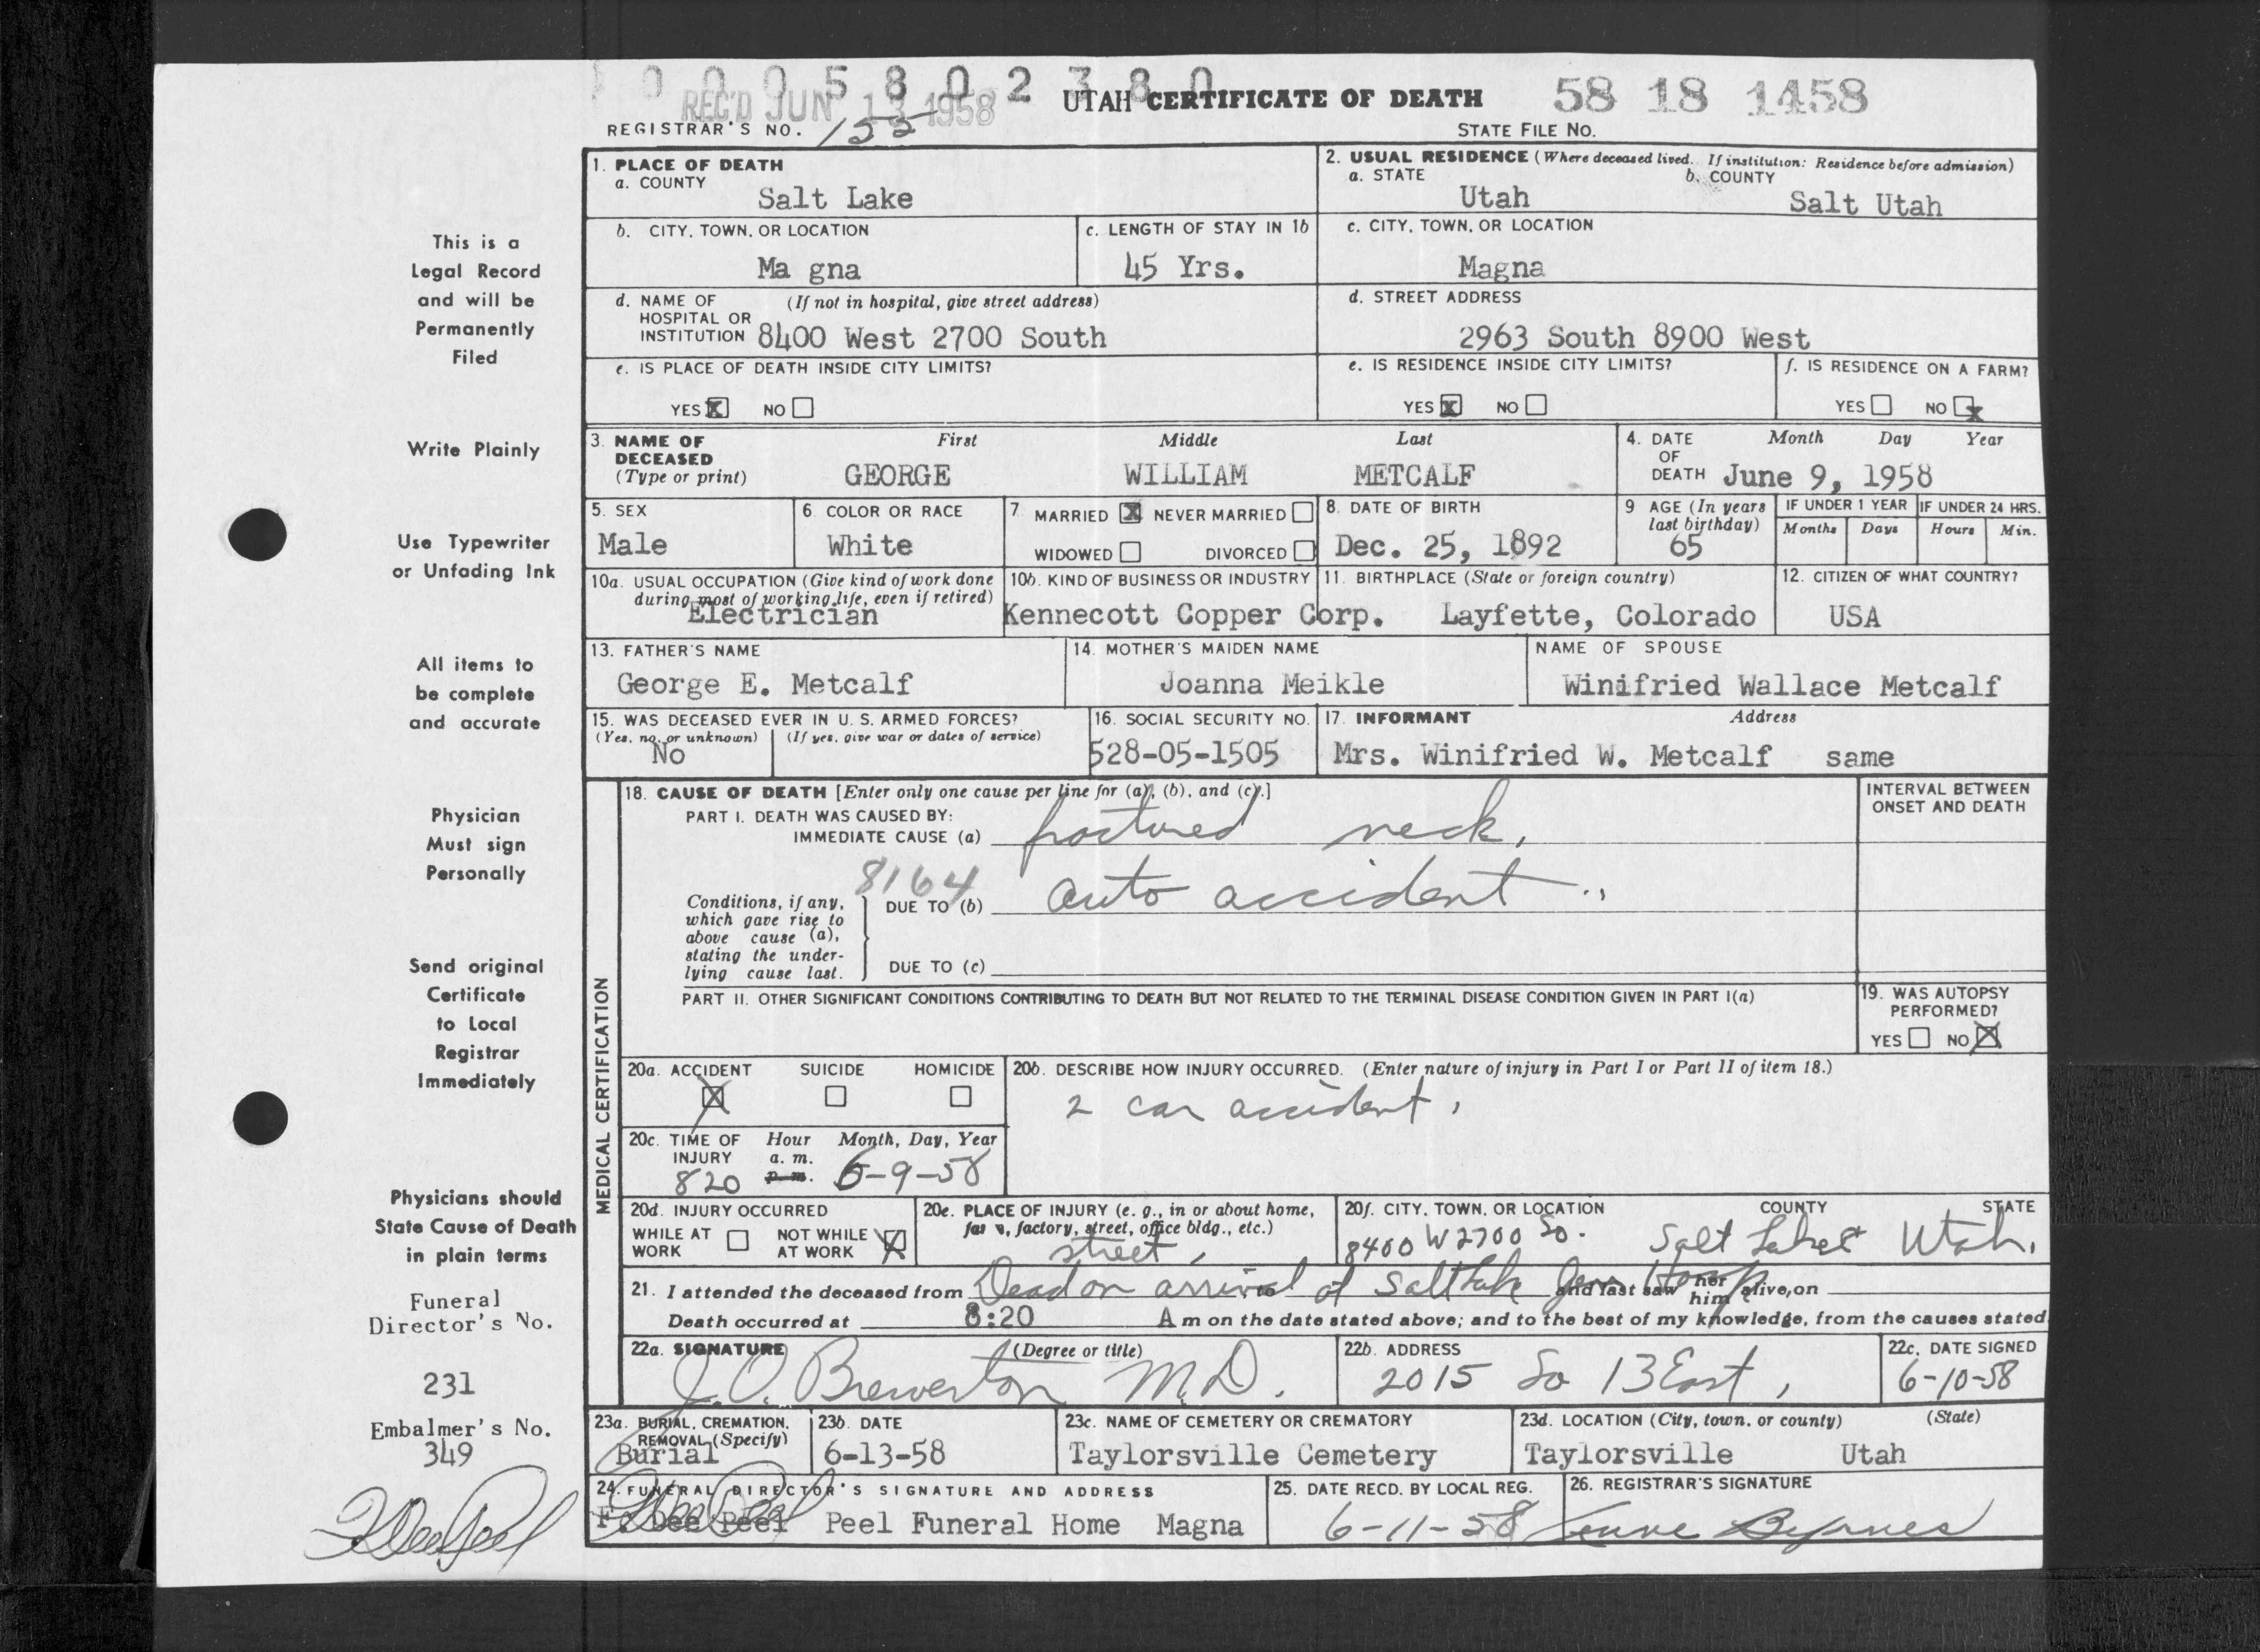 0 0 0 5 8 0 2 3 8 0
REC'D JUN 13 1958
UTAH CERTIFICATE OF DEATH
58 18 1458
REGISTRAR'S NO. 155
STATE FILE NO.
1. PLACE OF DEATH
a. COUNTY
Salt Lake
2. USUAL RESIDENCE (Where deceased lived. If institution: Residence before admission)
a. STATE b. COUNTY
Utah Salt Utah
b. CITY, TOWN, OR LOCATION
Ma gna
c. LENGTH OF STAY IN 1b
45 Yrs.
c. CITY, TOWN, OR LOCATION
Magna
d. NAME OF (If not in hospital, give street address)
HOSPITAL OR
INSTITUTION 8400 West 2700 South
d. STREET ADDRESS
2963 South 8900 West
e. IS PLACE OF DEATH INSIDE CITY LIMITS?
YES X NO
e. IS RESIDENCE INSIDE CITY LIMITS?
YES X NO
f. IS RESIDENCE ON A FARM?
YES NO X
3. NAME OF DECEASED (Type or print)
First Middle Last
GEORGE WILLIAM METCALF
4. DATE OF DEATH
Month Day Year
June 9, 1958
5. SEX
Male
6. COLOR OR RACE
White
7. MARRIED X NEVER MARRIED
WIDOWED DIVORCED
8. DATE OF BIRTH
Dec. 25, 1892
9 AGE (In years last birthday)
65
IF UNDER 1 YEAR IF UNDER 24 HRS.
Months Days Hours Min.
10a. USUAL OCCUPATION (Give kind of work done
during most of working life, even if retired)
Electrician
10b. KIND OF BUSINESS OR INDUSTRY
Kennecott Copper Corp.
11. BIRTHPLACE (State or foreign country)
Layfette, Colorado
12. CITIZEN OF WHAT COUNTRY?
USA
13. FATHER'S NAME
George E. Metcalf
14. MOTHER'S MAIDEN NAME
Joanna Meikle
NAME OF SPOUSE
Winifried Wallace Metcalf
15. WAS DECEASED EVER IN U. S. ARMED FORCES?
(Yes, no, or unknown) (If yes, give war or dates of service)
No
16. SOCIAL SECURITY NO.
528-05-1505
17. INFORMANT Address
Mrs. Winifried W. Metcalf same
MEDICAL CERTIFICATION
18. CAUSE OF DEATH [Enter only one cause per line for (a), (b), and (c).]
INTERVAL BETWEEN
ONSET AND DEATH
PART I. DEATH WAS CAUSED BY:
IMMEDIATE CAUSE (a) fractured neck,
8164
Conditions, if any,
which gave rise to
above cause (a),
stating the under-
lying cause last.
DUE TO (b) auto accident
DUE TO (c)
PART II. OTHER SIGNIFICANT CONDITIONS CONTRIBUTING TO DEATH BUT NOT RELATED TO THE TERMINAL DISEASE CONDITION GIVEN IN PART I(a)
19. WAS AUTOPSY
PERFORMED?
YES NO X
20a. ACCIDENT SUICIDE HOMICIDE
X
20b. DESCRIBE HOW INJURY OCCURRED. (Enter nature of injury in Part I or Part II of item 18.)
2 car accident,
20c. TIME OF INJURY Hour Month, Day, Year
a. m.
820 p. m. 6-9-58
20d. INJURY OCCURRED
WHILE AT WORK NOT WHILE AT WORK X
20e. PLACE OF INJURY (e. g., in or about home,
farm, factory, street, office bldg., etc.)
street,
20f. CITY, TOWN, OR LOCATION COUNTY STATE
8400 W 2700 So. Salt Lake Utah,
21. I attended the deceased from Dead on arrival at Salt Lake Gen Hosp and last saw her him alive on
Death occurred at 8:20 A m on the date stated above; and to the best of my knowledge, from the causes stated
22a. SIGNATURE (Degree or title)
J. O. Brewerton M.D.
22b. ADDRESS
2015 So 13 East,
22c. DATE SIGNED
6-10-58
23a. BURIAL, CREMATION,
REMOVAL (Specify)
Burial
23b. DATE
6-13-58
23c. NAME OF CEMETERY OR CREMATORY
Taylorsville Cemetery
23d. LOCATION (City, town, or county) (State)
Taylorsville Utah
24. FUNERAL DIRECTOR'S SIGNATURE AND ADDRESS
F. Dee Peel Peel Funeral Home Magna
25. DATE RECD. BY LOCAL REG.
6-11-58
26. REGISTRAR'S SIGNATURE
Byrnes
This is a
Legal Record
and will be
Permanently
Filed
Write Plainly
Use Typewriter
or Unfading Ink
All items to
be complete
and accurate
Physician
Must sign
Personally
Send original
Certificate
to Local
Registrar
Immediately
Physicians should
State Cause of Death
in plain terms
Funeral
Director's No.
231
Embalmer's No.
349
F Dee Peel